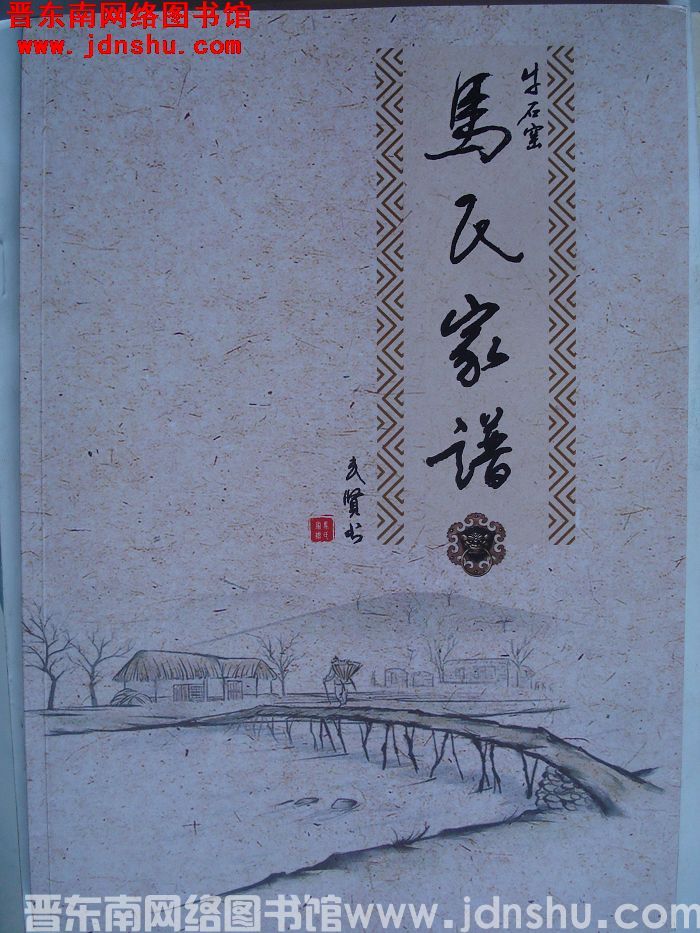 晋东南网络图书馆
www. jdnshu.com
牛石窑
馬氏家譜
武賢书
晋东南网络图书馆www.jdnshu.com